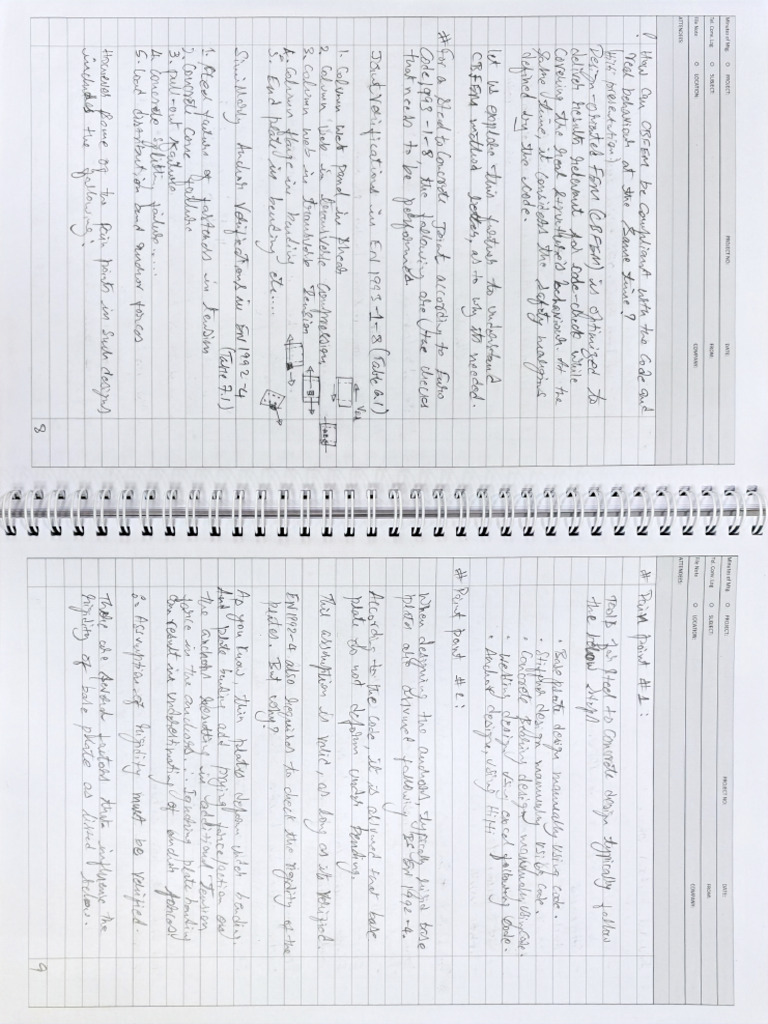 Minutes of Mtg. O PROJECT: PROJECT NO: DATE:
Tel. Conv. Log O SUBJECT: FROM:
File Note O LOCATION: COMPANY:
ATTENDEES:
? How can CBFEM be compliant with the Code and
real behaviour at the same time?
(Hilti presentation)
Design-oriented FEM (CBFEM) is optimized to
deliver results relevant to code-check while
covering the real hypothesis behaviour. At the
same time, it considers the safety margins
defined by the code.
let us explore this further to understand
CBFEM method better, as to why its needed.
# For a steel to concrete joint according to Euro
Code 1993-1-8, the following are the checks
that needs to be performed
Joint Verifications in EN 1993-1-8 (Table 6.1)
1. Column web panel in shear
2. Column web in transverse compression
3. Column web in transverse tension
4. Column flange in bending
5. End plate in bending etc...
Similarly Anchor Verifications in EN 1992-4
(Table 7.1)
1. Steel failure of fasteners in tension
2. Concrete cone failure
3. pull-out failure
4. Concrete splitting failure....
5. load distribution and anchor forces
However some of the pain points in such designs
includes the following:
8
Minutes of Mtg. O PROJECT: PROJECT NO: DATE:
Tel. Conv. Log O SUBJECT: FROM:
File Note O LOCATION: COMPANY:
ATTENDEES:
# Pain point #1:
Tools for steel to concrete design typically follow
the below steps
• Base plate design manually using code.
• Stiffener design manually using code.
• Concrete design manually using code.
• Welding design using excel following code.
• Anchor design, using Hilti
# Pain point #2:
When designing the anchors, typically rigid base
plates are assumed following EN 1992-4.
According to the code, it is assumed that base
plate do not deform under bending.
This assumption is valid, as long as its verified.
EN 1992-4 also requires to check the rigidity of the
plates. But why?
As you know, thin plates deform under bending.
And plate bending add prying force/action on
the anchors resulting in additional tension
force in the anchors... Ignoring plate bending
can result in underestimating of anchor forces
∴ Assumption of rigidity must be verified.
There are several factors that influence the
rigidity of base plate as listed below.
9